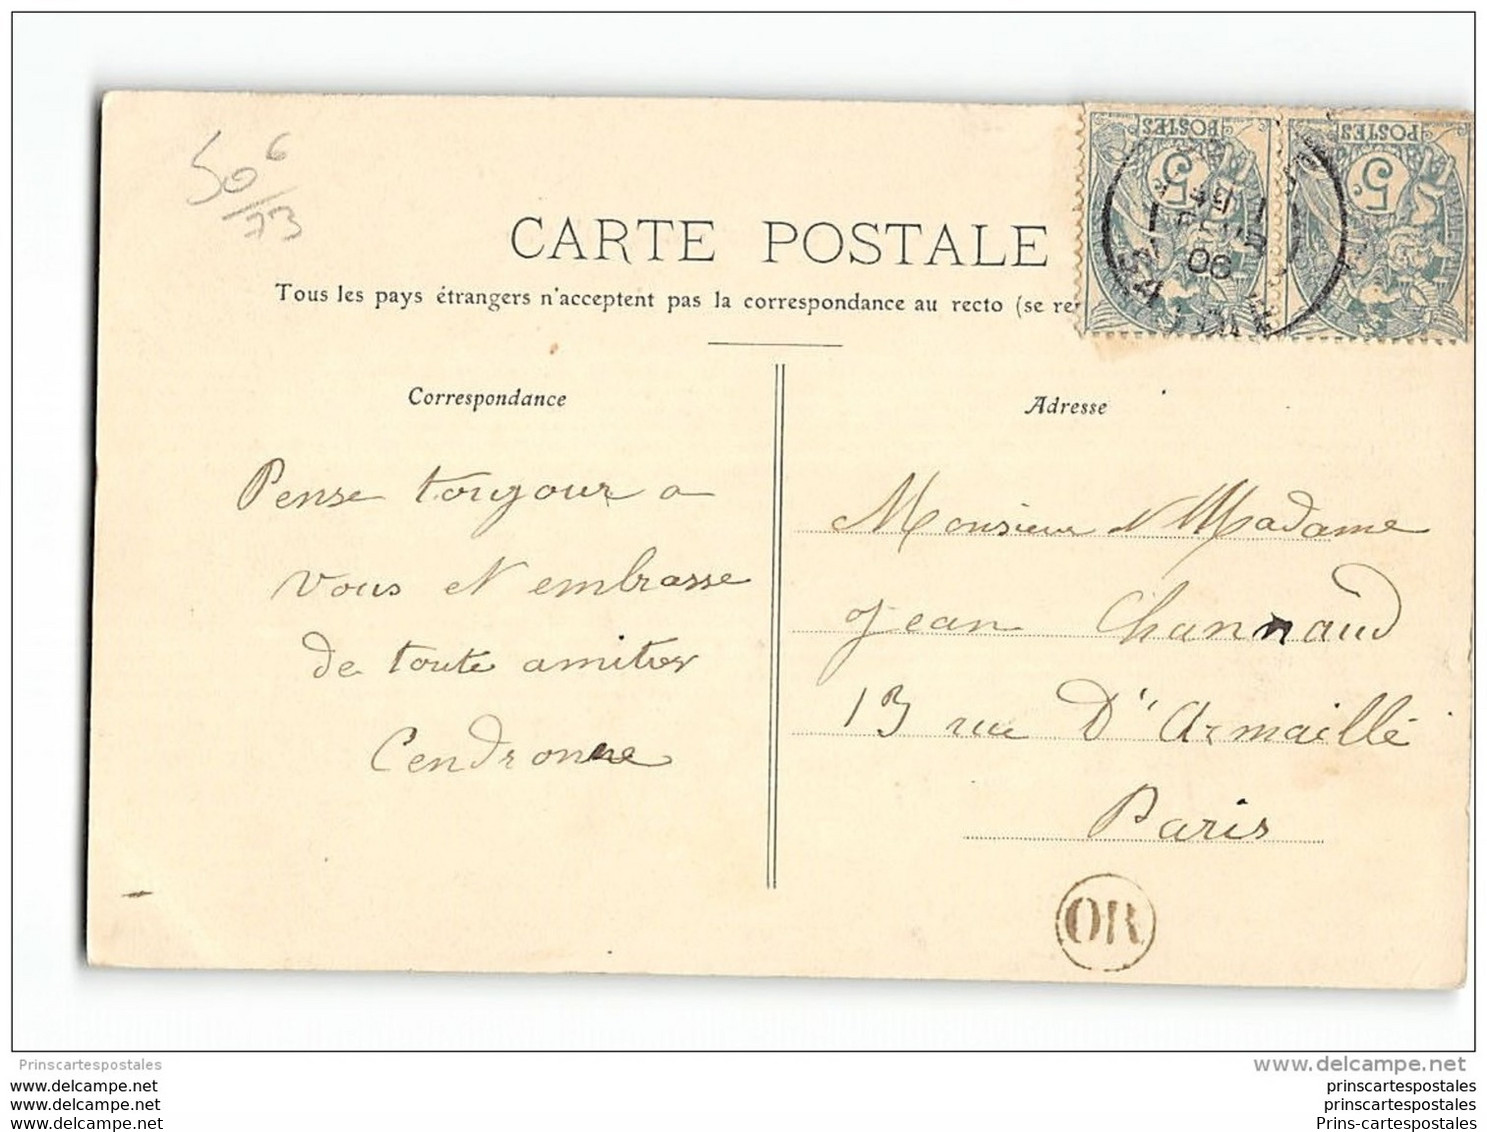 50 6
73
POSTES
POSTES
5
5c
06
CARTE POSTALE
Tous les pays étrangers n'acceptent pas la correspondance au recto (se re
Correspondance
Adresse
Pense toujour a
vous et embrasse
de toute amities
Cendronne
Monsieur et Madame
Jean Channaud
13 rue D'' Armaillé
Paris
OR
Prinscartespostales
www.delcampe.net
www.delcampe.net
www.delcampe.net
www.delcampe.net
prinscartespostales
prinscartespostales
Prins-cartespostales